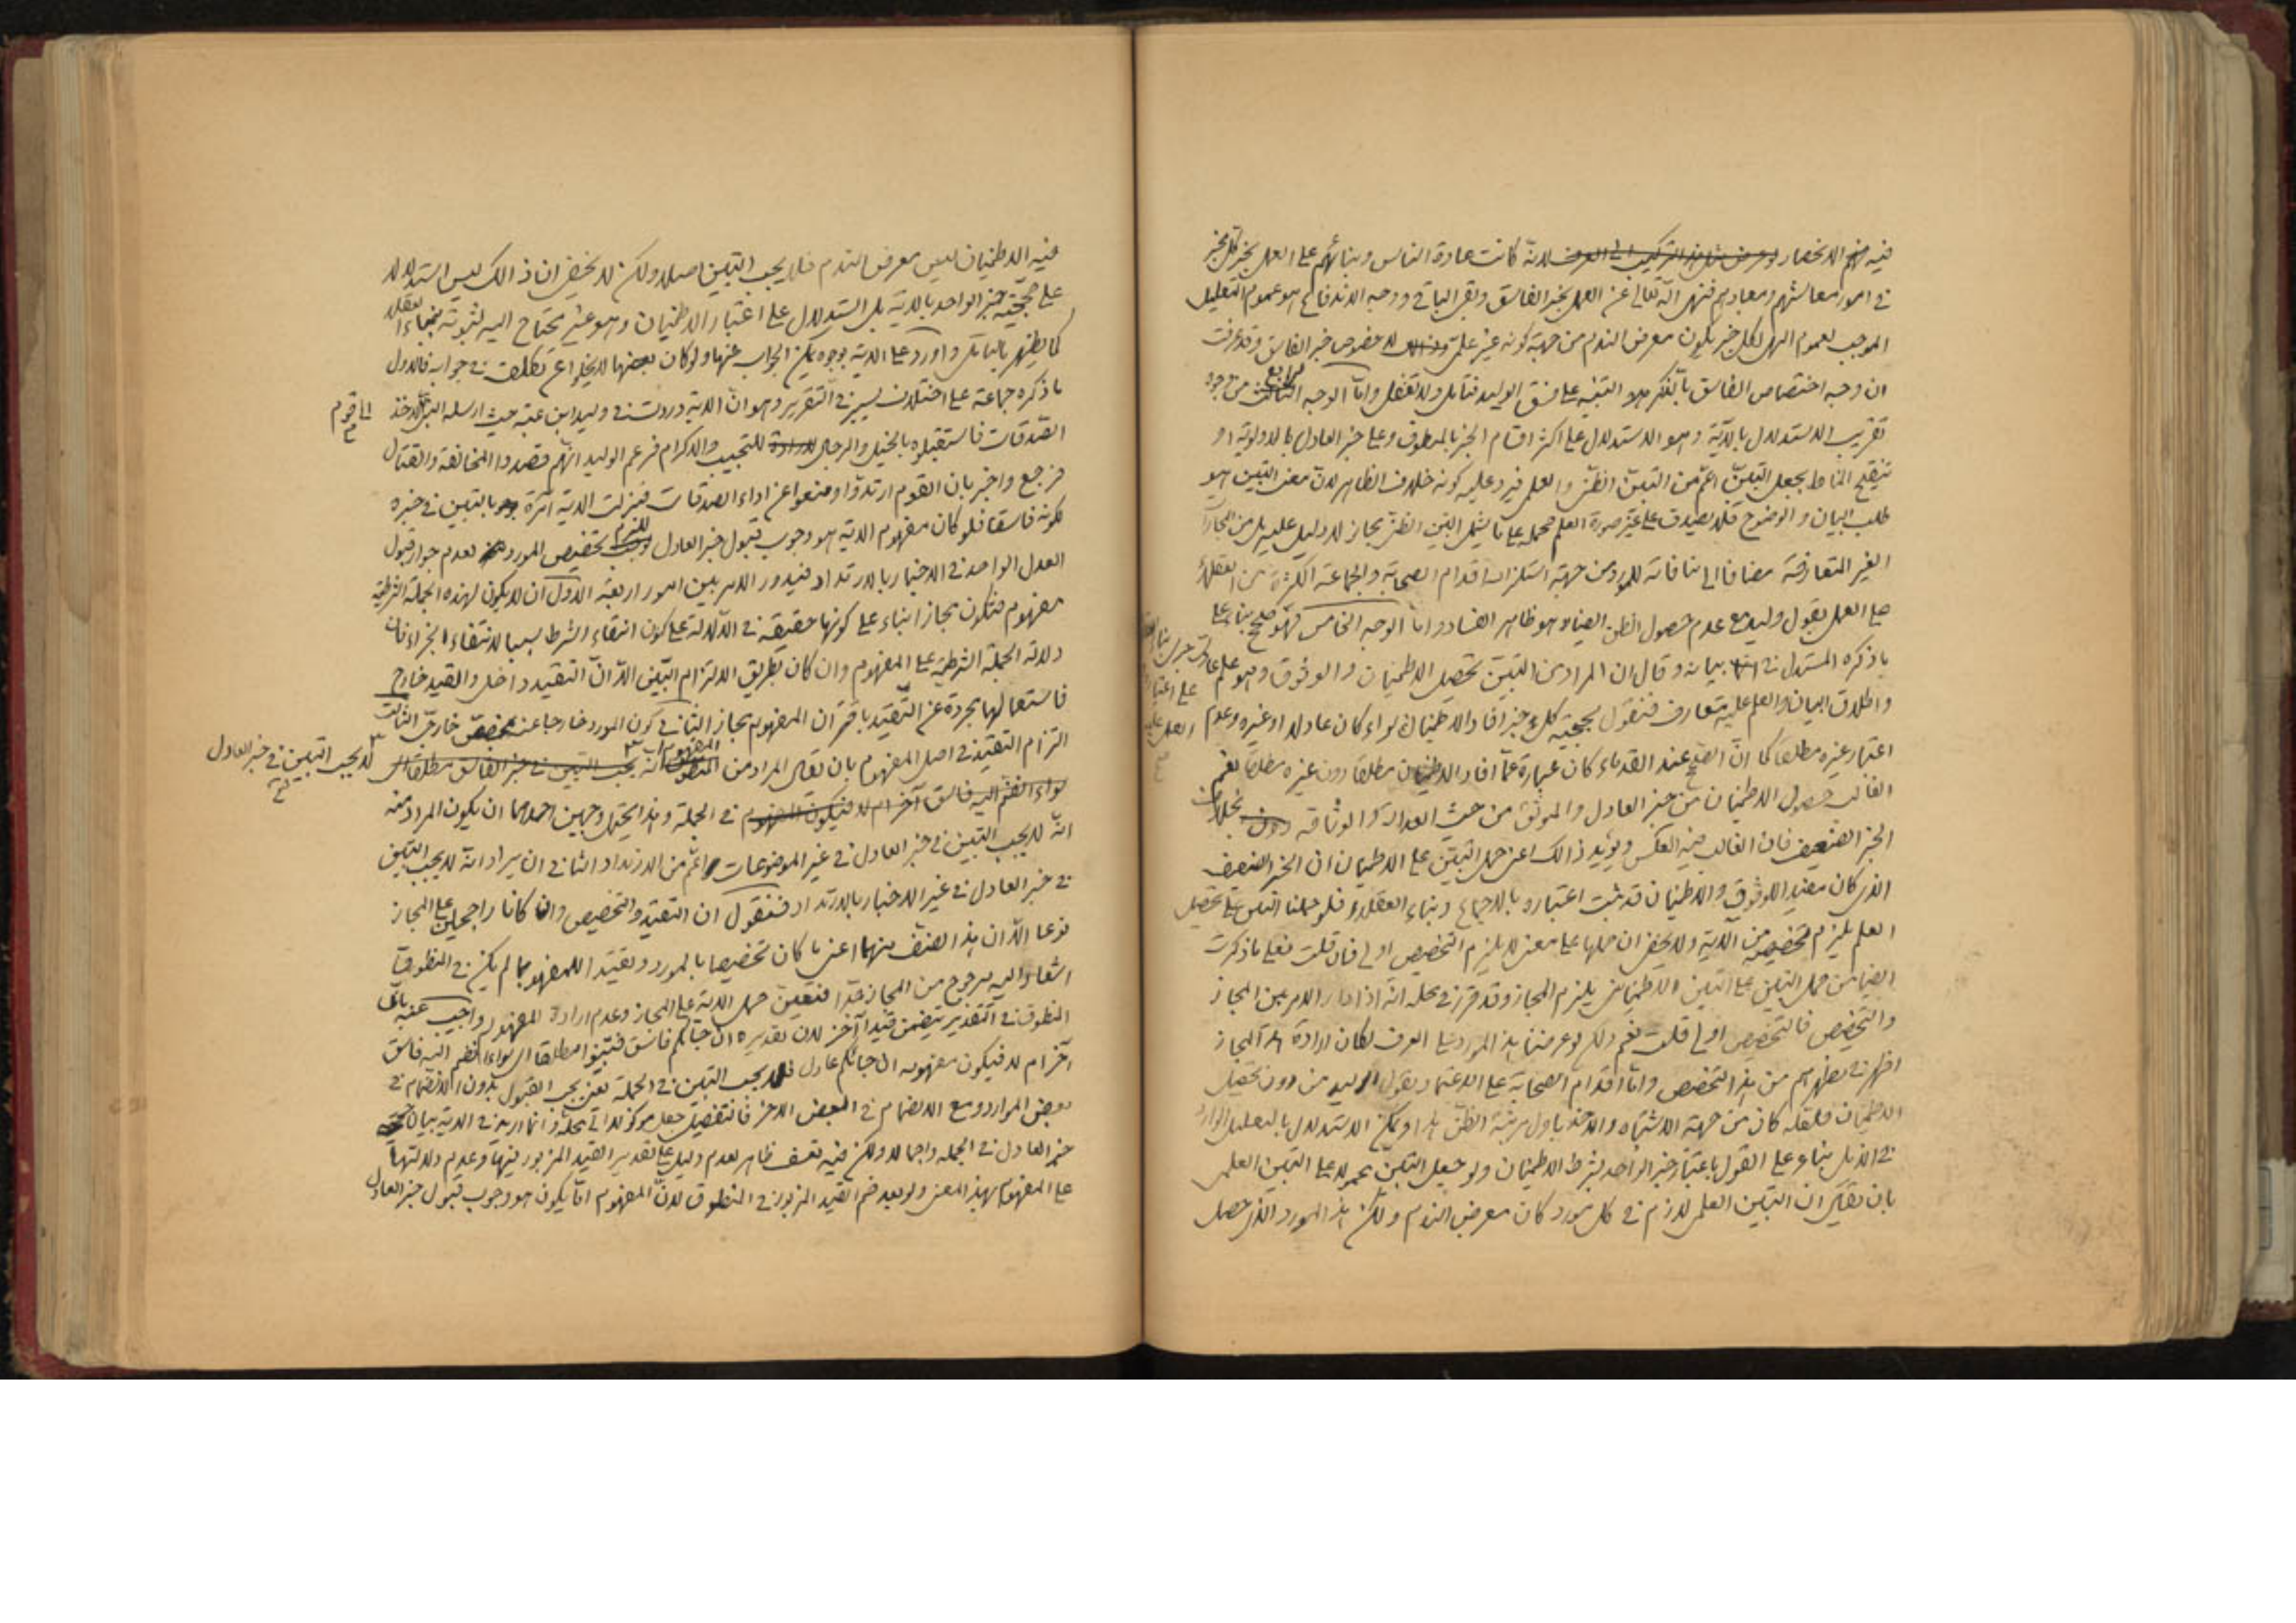 فيه الانحصار لانه كانت عادة الناس وبنائهم على العمل بخبر كل مخبر
في امور معاشهم ومعادهم فنهى الله تعالى عن العمل بخبر الفاسق وبقى الباقي ووجه الاندفاع هو عموم التعليل
الموجب لعموم النهى لكل خبر يكون معرض الندم من جهة كونه غير علمى لا خصوص خبر الفاسق وقد عرفت
ان وجه اختصاص الفاسق بالذكر هو التنبيه على فسق الوليد فتامل ولا تغفل واما الوجه الرابع من وجوه
تقريب الاستدلال بالآية وهو الاستدلال على اكثر اقسام الخبر بالمنطوق وعلى خبر العادل بالاولوية او
تنقيح المناط بجعل التبين اعم من التبين الظنى والعلمى فيرد عليه كونه خلاف الظاهر لان معنى التبين هو
طلب البيان والوضوح فلا يصدق على غير صورة العلم فحمله على ما يشمل التبين الظنى مجاز لا دليل عليه بل من المجازات
الغير المتعارفة مضافا الى منافاته للمورد من جهة استلزام اقدام الصحابة والجماعة الكثيرة من العقلاء
على العمل بقول وليد مع عدم حصول الظن ايضا وهو ظاهر الفساد واما الوجه الخامس فهو صحيح بناء على
ما ذكره المستدل في بيانه وقال ان المراد من التبين تحصيل الاطمينان والوثوق وهو علم عادى
واطلاق البيان والعلم عليه متعارف فنقول بحجية كل خبر افاد الاطمينان سواء كان عادلا او غيره وعدم
اعتبار غيره مطلقا كما ان الصحيح عند القدماء كان عبارة عما افاد الاطمينان مطلقا دون غيره مطلقا نعم
الغالب حصول الاطمينان من خبر العادل والموثق من حيث العدالة والوثاقة بخلاف
الخبر الضعيف فان الغالب فيه العكس ويؤيد ذالك اعنى حمل التبين على الاطمينان ان الخبر الضعيف
الذى كان مفيدا للوثوق والاطمينان قد ثبت اعتباره بالاجماع وبناء العقلاء فلو حملنا التبين على تحصيل
العلم يلزم تخصيص من الآية ولا يخفى ان حملها على معنى لا يلزم التخصيص اولى فان قلت فعلى ما ذكرت
ايضا من حمل التبين على التبين الاطمينانى يلزم المجاز وقد قرر في محله انه اذا دار الامر بين المجاز
والتخصيص فالتخصيص اولى قلت نعم ولكن لو عرضنا هذا المورد على العرف لكان ارادة هذا المجاز
اظهر في نظرهم من هذا التخصيص واما اقدام الصحابة على الاعتماد بقول الوليد من دون تحصيل
الاطمينان فلعله كان من جهة الاشتباه والاخذ باول مرتبة الظن هذا ويمكن الاستدلال بالتعليل الوارد
في الذيل بناء على القول باعتبار خبر الواحد بشرط الاطمينان ولو جعل التبين محمولا على التبين العلمى
بان يقال ان التبين العلمى لازم في كل مورد كان معرض الندم ولكن هذا المورد الذى حصل
فيه الاطمينان ليس معرض الندم فلا يجب التبين اصلا ولكن لا يخفى ان ذالك ليس استدلالا
على حجية خبر الواحد بالآية بل استدلال على اعتبار الاطمينان وهو غير محتاج اليه لثبوته ببناء العقلاء
كما يظهر بالتامل واورد على الآية بوجوه يمكن الجواب عنها ولو كان بعضها لا يخلوا عن تكلف في جوابه فالاول
ما ذكره جماعة على اختلاف يسير في التقرير وهو ان الآية وردت في وليد ابن عقبة حيث ارسله النبى لاخذ
الى قوم
الصدقات فاستقبلوه بالخيل والرجال للتجيب والاكرام فزعم الوليد انهم قصدوا المخالفة والقتال
فرجع واخبر بان القوم ارتدوا ومنعوا عن اداء الصدقات فنزلت الآية آمرة بالتبين في خبره
لكونه فاسقا فلو كان مفهوم الآية هو وجوب قبول خبر العادل للزم تخصيص المورد لعدم جواز قبول
العدل الواحد في الاخبار بالارتداد فيدور الامر بين امور اربعة الاول ان لا يكون لهذه الجملة الشرطية
مفهوم فتكون مجازا بناء على كونها حقيقة في الدلالة على كون انتفاء الشرط سببا لانتفاء الجزاء فان
دلالة الجملة الشرطية على المفهوم وان كان بطريق الالتزام البين الا ان التقييد داخل والقيد خارج
فاستعمالها مجردة عن التقييد باقتران المفهوم مجاز الثانى كون المورد خارجا عنه بمخصص خارجى الثالث
التزام التقييد في اصل المفهوم بان يقال المراد من المفهوم انه لا يجب التبين في خبر العادل
في الجملة وهذا يحتمل وجهين احدهما ان يكون المراد منه
انه لا يجب التبين في خبر العادل في غير الموضوعات اعم من الارتداد الثانى ان يراد انه لا يجب التبين
في خبر العادل في غير الاخبار بالارتداد فنقول ان التقييد والتخصيص وان كانا راجحين على المجاز
نوعا الا ان هذا الصنف منهما اعنى ما كان تخصيصا بالمورد وتقييدا للمفهوم بما لم يكن في المنطوق
اشعار اليه مرجوح من المجاز جدا فتعين حمل الآية على المجاز وعدم ارادة المفهوم واجيب عنه بان
المنطوق في التقدير يتضمن قيدا آخر لان تقديره ان جائكم فاسق فتبينوا مطلقا اى سواء انضم اليه فاسق
آخر ام لا فيكون مفهومه ان جائكم عادل فلا يجب التبين في الجملة يعنى يجب القبول بدون الانضمام في
بعض الموارد ومع الانضمام في البعض الآخر فالتفصيل حمل موكولا الى محله وانما اريد في الآية بيان حجية
خبر العادل في الجملة واجمالا ولكن فيه تعسف ظاهر لعدم دليل على تقدير القيد المزبور فيها وعدم دلالتها
على المفهوم بهذا المعنى ولو بعد ضم القيد المزبور في المنطوق لان المفهوم انما يكون هو وجوب قبول خبر العادل